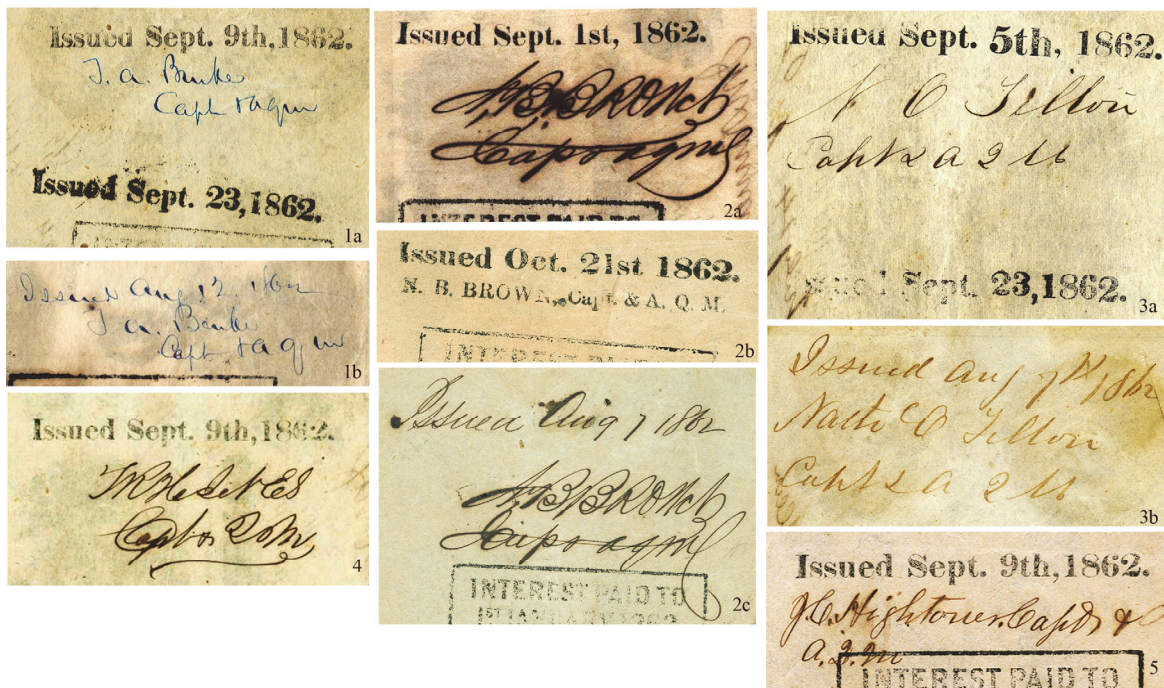 Issued Sept. 9th, 1862.
T. A. Burke
Capt & aqm
Issued Sept. 23, 1862.
1a
Issued Aug 12. 1862
T. A. Burke
Capt & a q m
1b
Issued Sept. 9th, 1862.
Capt & 
4
Issued Sept. 1st, 1862.
N. B. BROWN
Capt & aqm
INTEREST PAID TO
2a
Issued Oct. 21st 1862.
N. B. BROWN, Capt. & A. Q. M.
INTEREST PAID
2b
Issued Aug 7 1862
N. B. BROWN
Capt & aqm
INTEREST PAID TO
1ST JANUARY 1863
2c
Issued Sept. 5th, 1862.
N C Tilton
Capt & A Q M
Issued Sept. 23, 1862.
3a
Issued Aug 7th 1862
Nath C Tilton
Capt & A Q M
3b
Issued Sept. 9th, 1862.
J. C. Hightower. Capt &
A. Q. M
INTEREST PAID TO
5